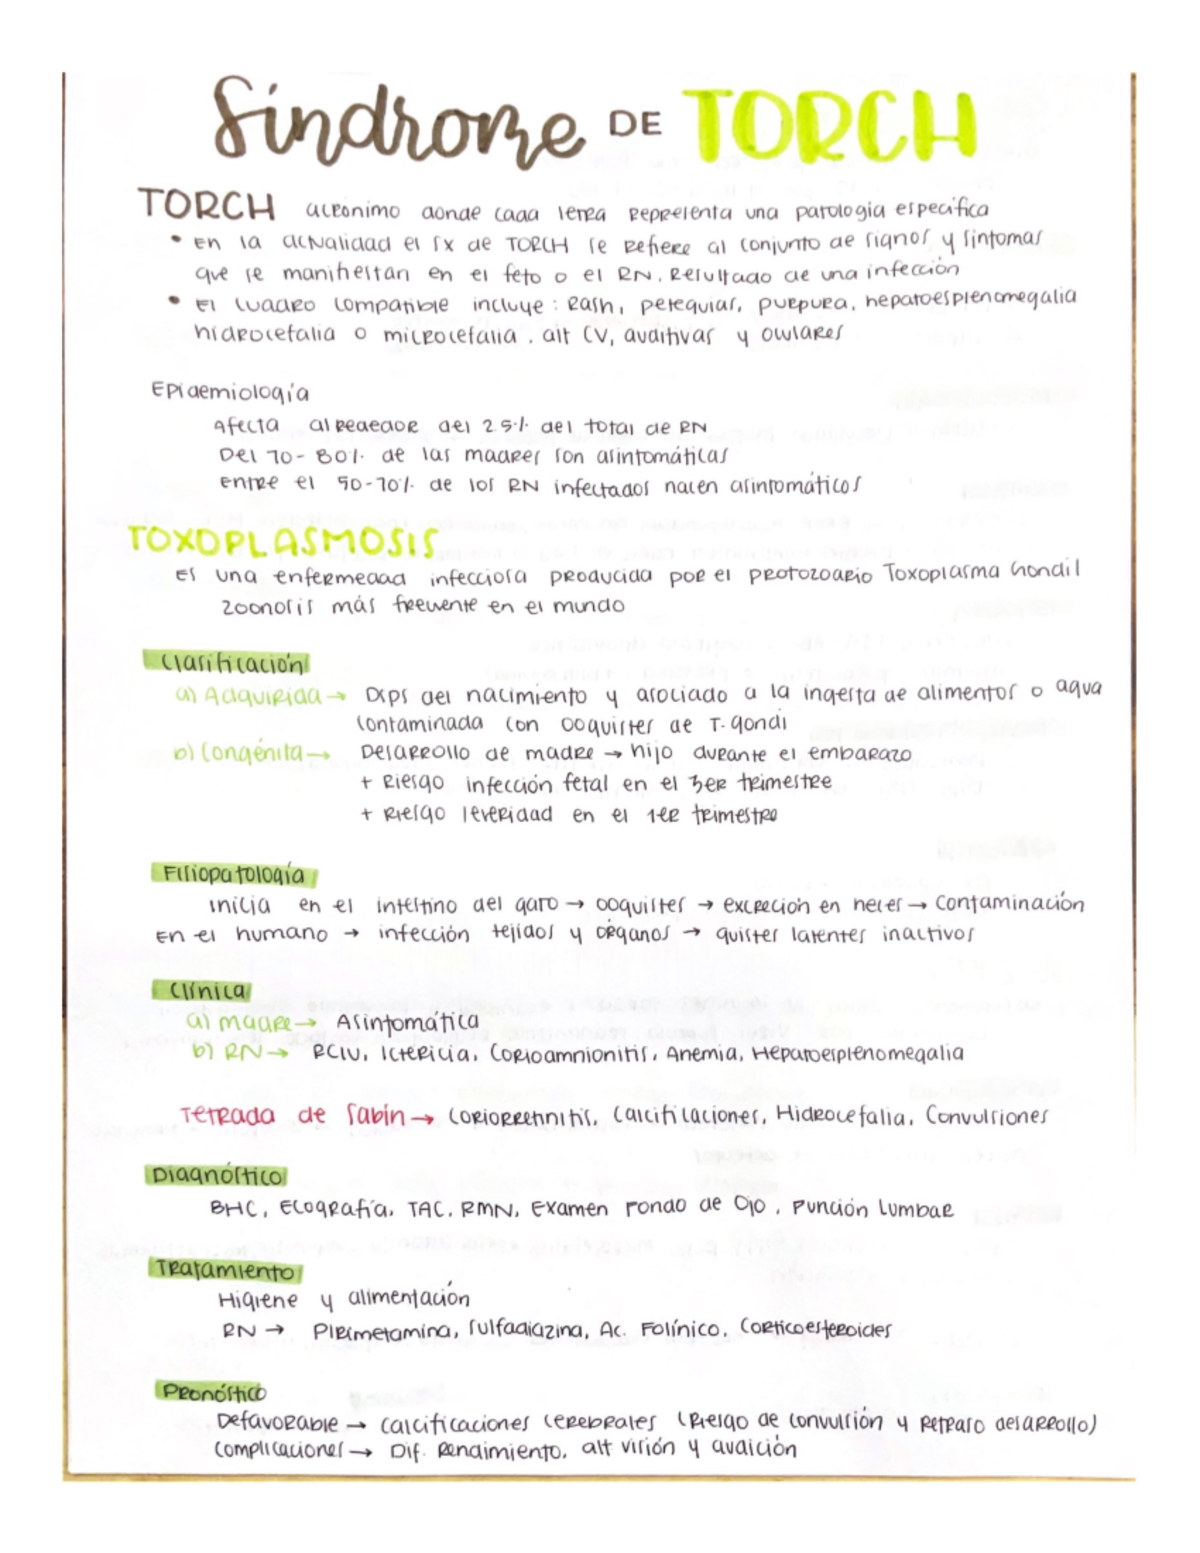 Síndrome DE TORCH
TORCH acrónimo donde cada letra representa una patología especifica
• En la actualidad el sx de TORCH se refiere al conjunto de signos y sintomas
que se manifiestan en el feto o el RN. Resultado de una infección
• El cuadro compatible incluye: Rash, petequias, purpura, hepatoesplenomegalia
hidrocefalia o microcefalia. alt CV, auditivas y oculares
Epidemiología
Afecta alrededor del 2.5% del total de RN
Del 70-80% de las madres son asintomáticas
Entre el 50-70% de los RN infectados nacen asintomáticos
TOXOPLASMOSIS
Es una enfermedad infecciosa producida por el protozoario Toxoplasma Gondil
Zoonosis más frecuente en el mundo
Clasificación
a) Adquirida → Dsps del nacimiento y asociado a la ingesta de alimentos o agua
contaminada con ooquistes de T. gondi
b) Congénita → Desarrollo de madre → hijo durante el embarazo
+ Riesgo infección fetal en el 3er trimestre
+ Riesgo severidad en el 1er trimestre
Fisiopatología
Inicia en el intestino del gato → ooquistes → excreción en heces → contaminación
En el humano → infección tejidos y órganos → quistes latentes inactivos
Clínica
a) madre → Asintomática
b) RN → RCIU, Ictericia, Corioamnionitis, Anemia, Hepatoesplenomegalia
Tetrada de Sabin → Coriorretinitis, Calcificaciones, Hidrocefalia, Convulsiones
Diagnóstico
BHC, Ecografía, TAC, RMN, Examen Fondo de Ojo, Punción Lumbar
Tratamiento
Higiene y alimentación
RN → Pirimetamina, Sulfadiazina, Ac. Folínico, Corticoesteroides
Pronóstico
Defavorable → calcificaciones cerebrales (Riesgo de convulsión y Retraso desarrollo)
Complicaciones → Dif. Rendimiento, alt visión y audición